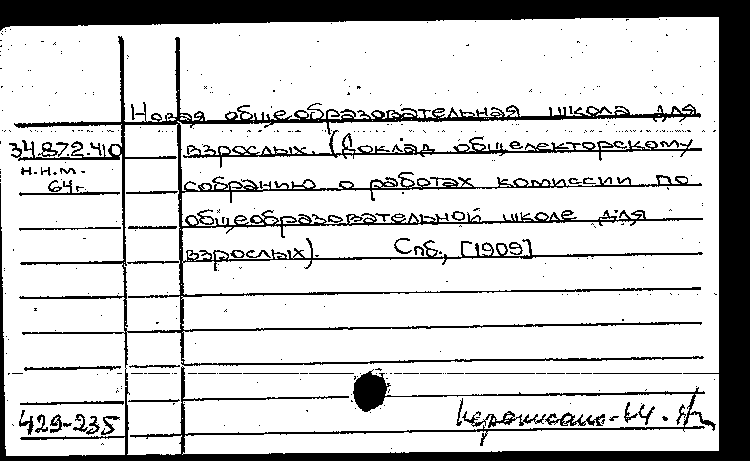 Новая общеобразовательная школа для
34.872.410 взрослых. (Доклад общелекторскому
н.н.м.
64г. собранию о работах комиссии по
общеобразовательной школе для
взрослых). Спб., [1909]
429-235